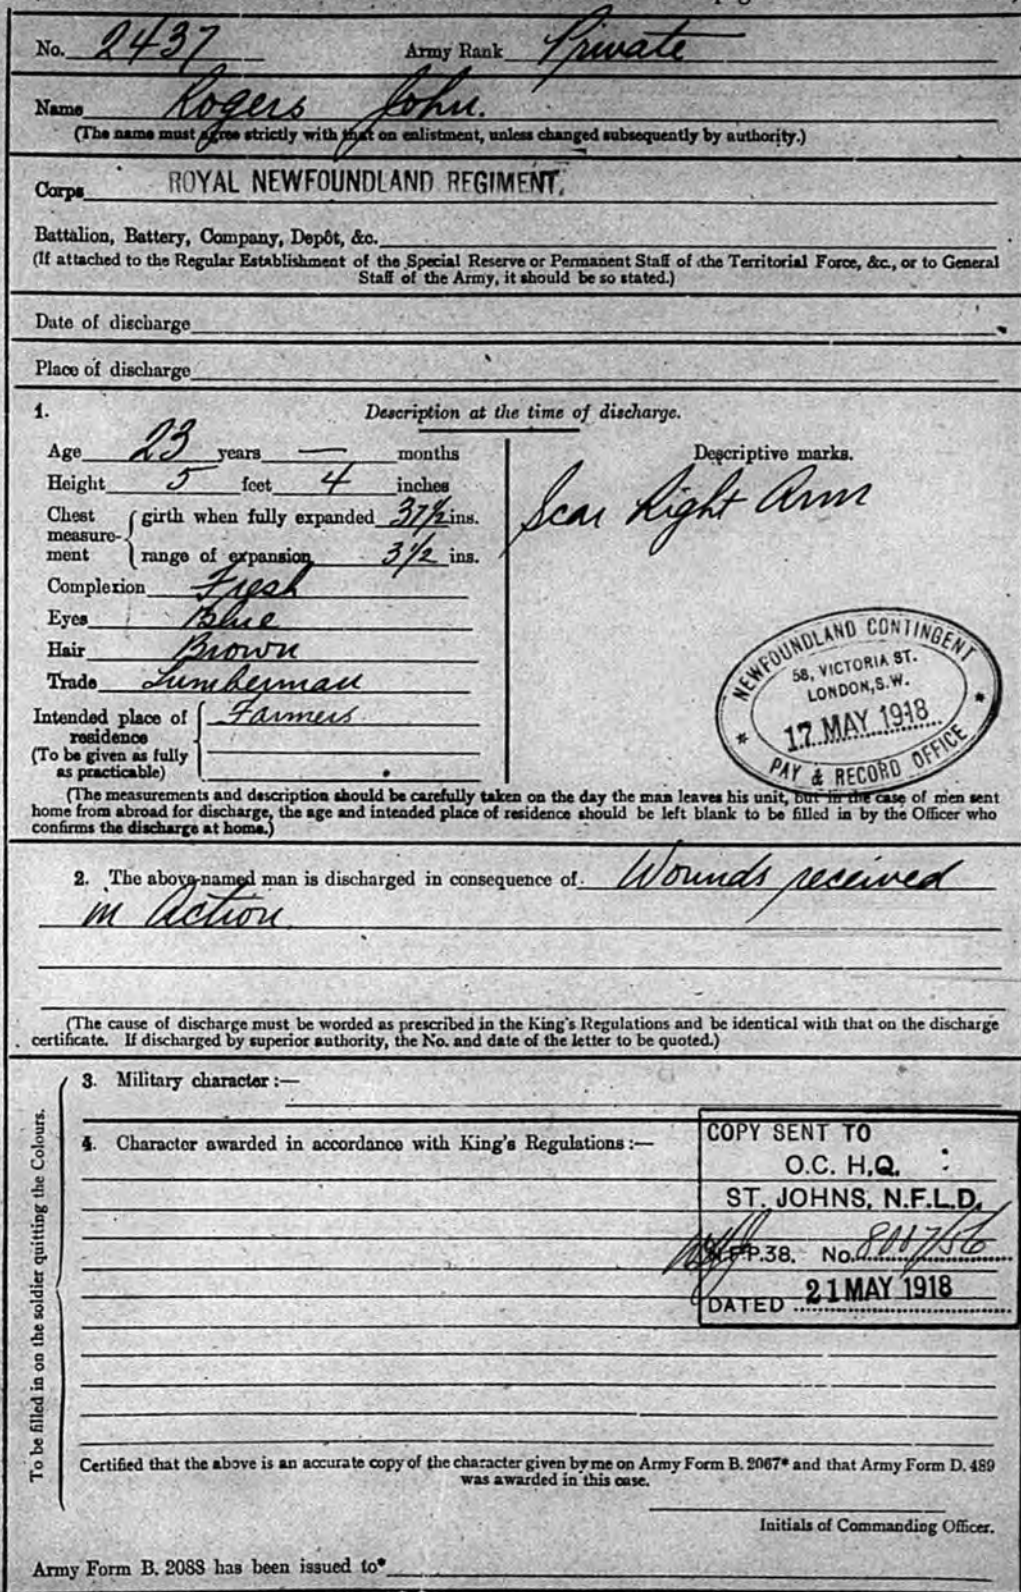 No. 2437 Army Rank Private
Name Rogers John.
(The name must agree strictly with that on enlistment, unless changed subsequently by authority.)
Corps ROYAL NEWFOUNDLAND REGIMENT.
Battalion, Battery, Company, Depôt, &c.
(If attached to the Regular Establishment of the Special Reserve or Permanent Staff of the Territorial Force, &c., or to General
Staff of the Army, it should be so stated.)
Date of discharge
Place of discharge
1. Description at the time of discharge.
Age 23 years — months
Height 5 feet 4 inches
Chest measure-ment
girth when fully expanded 37½ ins.
range of expansion 3½ ins.
Complexion Fresh
Eyes Blue
Hair Brown
Trade Lumberman
Intended place of residence Farmers
(To be given as fully
as practicable)
Descriptive marks.
Scar Right Arm
NEWFOUNDLAND CONTINGENT
58, VICTORIA ST.
LONDON, S.W.
17 MAY 1918
PAY & RECORD OFFICE
(The measurements and description should be carefully taken on the day the man leaves his unit, but in the case of men sent
home from abroad for discharge, the age and intended place of residence should be left blank to be filled in by the Officer who
confirms the discharge at home.)
2. The above-named man is discharged in consequence of Wounds received
in Action
(The cause of discharge must be worded as prescribed in the King's Regulations and be identical with that on the discharge
certificate. If discharged by superior authority, the No. and date of the letter to be quoted.)
To be filled in on the soldier quitting the Colours.
3. Military character :—
4. Character awarded in accordance with King's Regulations :—
COPY SENT TO
O.C. H.Q.
ST. JOHNS, N.F.L.D.
P.38. No. 8017/56
DATED 21 MAY 1918
Certified that the above is an accurate copy of the character given by me on Army Form B. 2067* and that Army Form D. 489
was awarded in this case.
Initials of Commanding Officer.
Army Form B. 2088 has been issued to*